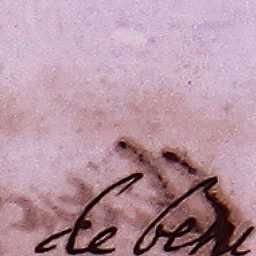 de beni